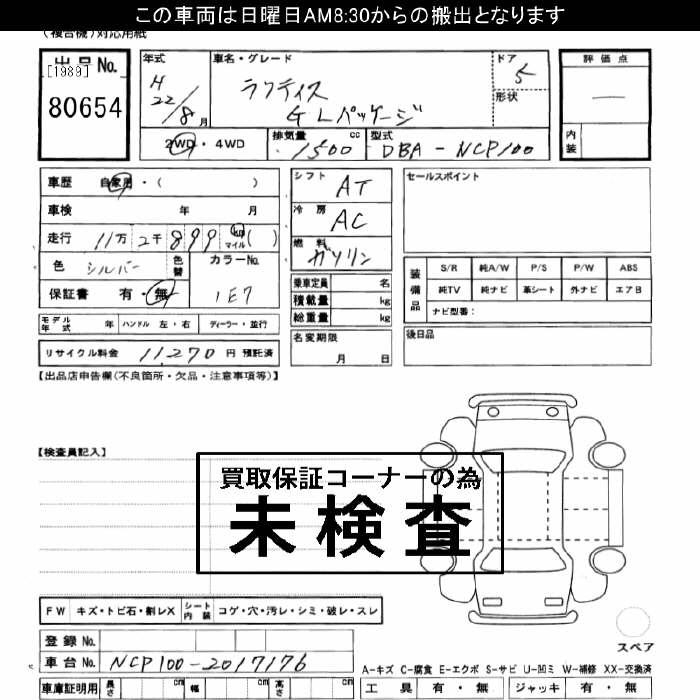 この車両は日曜日AM8:30からの搬出となります
(複合機)対応用紙
出品No.
[1989]
80654
年式
H22/8月
車名・グレード
ラクティス
G Lパッケージ
ドア
5
形状
評価点
—
内装
2WD・4WD
排気量 1500 cc
型式 DBA-NCP100
車歴 自家用・( )
車検 年 月
走行 11万2千899 km マイル( )
色 シルバー 色替
カラーNo.
1E7
保証書 有・無
シフト AT
冷房 AC
燃料 ガソリン
乗車定員 名
積載量 kg
総重量 kg
セールスポイント
装備品
S/R 純A/W P/S P/W ABS
純TV 純ナビ 革シート 外ナビ エアB
ナビ型番:
モデル年式 年 ハンドル 左・右 ディーラー・並行
名変期限
月 日
後日品
リサイクル料金 11270 円 預託済
【出品店申告欄(不良箇所・欠品・注意事項等)】
【検査員記入】
買取保証コーナーの為
未検査
FW キズ・トビ石・割レX シート内装 コゲ・穴・汚レ・シミ・破レ・スレ
スペア
登録No.
車台No. NCP100-2017176
A-キズ C-腐食 E-エクボ S-サビ U-凹ミ W-補修 XX-交換済
車庫証明用 長さ cm 幅 cm 高さ cm
工具 有・無 ジャッキ 有・無